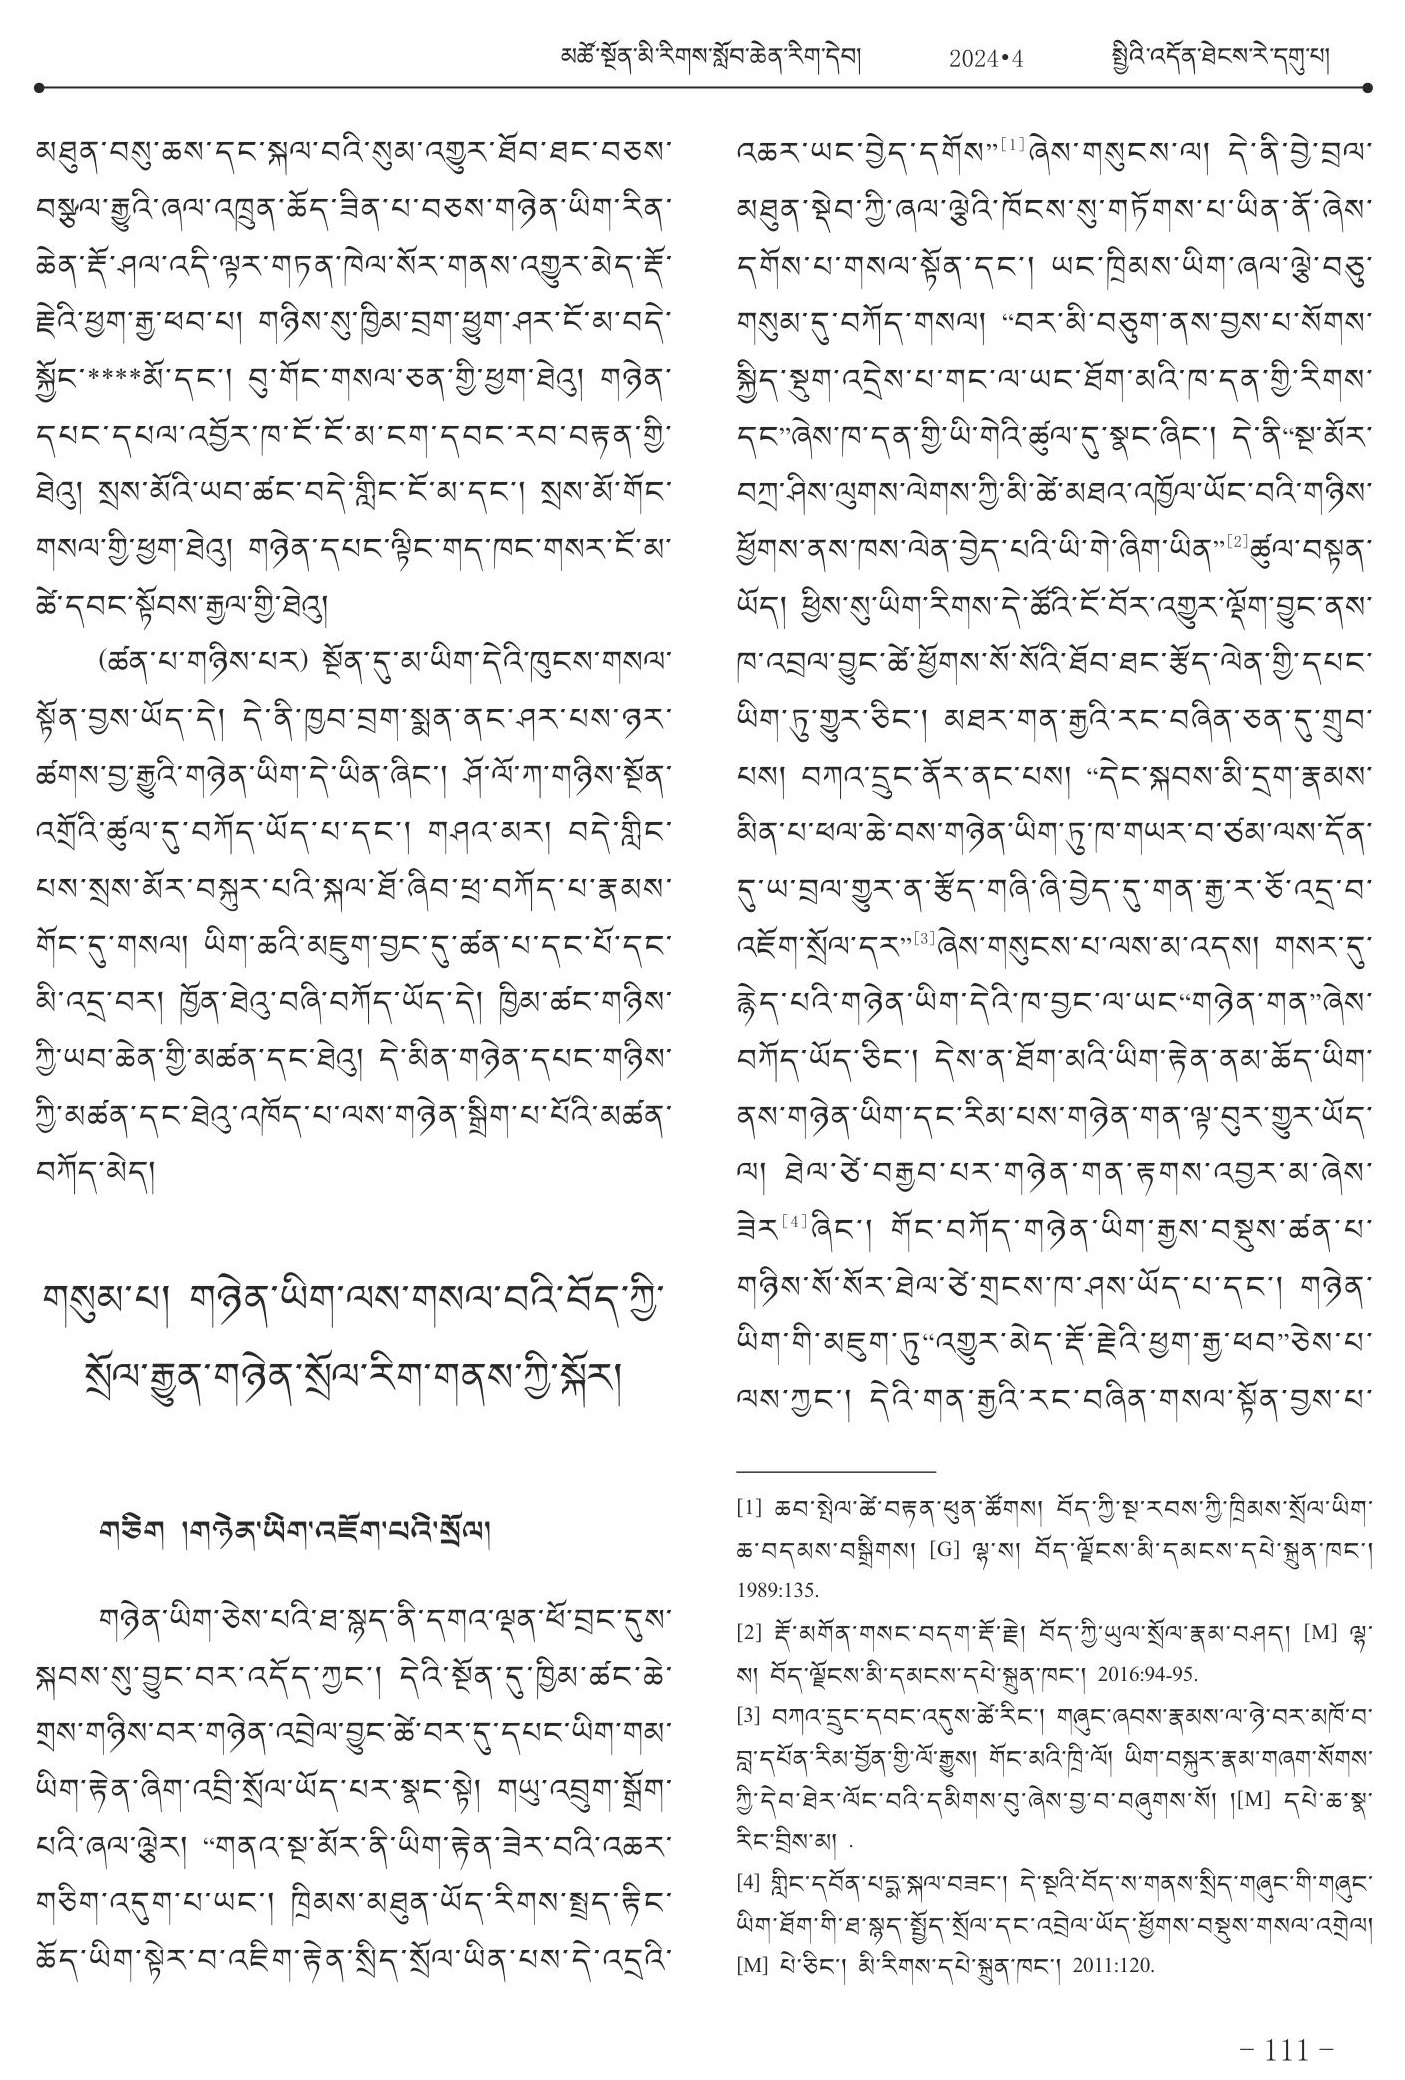 མཚོ་སྔོན་མི་རིགས་སློབ་ཆེན་རིག་དེབ། 2024•4 སྤྱིའི་འདོན་ཐེངས་རེ་དགུ་པ།
མཐུན་བསུ་ཆས་དང་སྐལ་བའི་སུམ་འགྱུར་ཐོབ་ཐང་བཅས་
བསྩལ་རྒྱུའི་ཞལ་འཁྲུན་ཆོད་ཟིན་པ་བཅས་གཉེན་ཡིག་རིན་
ཆེན་རྡོ་ཤལ་འདི་ལྟར་གཏན་ཁེལ་སོར་གནས་འགྱུར་མེད་རྡོ་
རྗེའི་ཕྱག་རྒྱ་ཕབ་པ། གཉིས་སུ་ཁྱིམ་བྲག་ཕྱུག་ཤར་ངོ་མ་བདེ་
སྐྱོང་****མོ་དང་། བུ་གོང་གསལ་ཅན་གྱི་ཕྱག་ཐེའུ། གཉེན་
དཔང་དཔལ་འབྱོར་ཁ་ངོ་ངོ་མ་ངག་དབང་རབ་བརྟན་གྱི་
ཐེའུ། སྲས་མོའི་ཡབ་ཚང་བདེ་གླིང་ངོ་མ་དང་། སྲས་མོ་གོང་
གསལ་གྱི་ཕྱག་ཐེའུ། གཉེན་དཔང་ལྟིང་གད་ཁང་གསར་ངོ་མ་
ཚེ་དབང་སྟོབས་རྒྱལ་གྱི་ཐེའུ།
(ཚན་པ་གཉིས་པར) སྔོན་དུ་མ་ཡིག་དེའི་ཁུངས་གསལ་
སྟོན་བྱས་ཡོད་དེ། དེ་ནི་ཁྱབ་བྲག་སྨན་ནང་ཤར་པས་ཉར་
ཚགས་བྱ་རྒྱུའི་གཉེན་ཡིག་དེ་ཡིན་ཞིང་། ཤོ་ལོ་ཀ་གཉིས་སྔོན་
འགྲོའི་ཚུལ་དུ་བཀོད་ཡོད་པ་དང་། གཤའ་མར། བདེ་གླིང་
པས་སྲས་མོར་བསྐུར་པའི་སྐལ་ཐོ་ཞིབ་ཕྲ་བཀོད་པ་རྣམས་
གོང་དུ་གསལ། ཡིག་ཆའི་མཇུག་བྱང་དུ་ཚན་པ་དང་པོ་དང་
མི་འདྲ་བར། ཁྱོན་ཐེའུ་བཞི་བཀོད་ཡོད་དེ། ཁྱིམ་ཚང་གཉིས་
ཀྱི་ཡབ་ཆེན་གྱི་མཚན་དང་ཐེའུ། དེ་མིན་གཉེན་དཔང་གཉིས་
ཀྱི་མཚན་དང་ཐེའུ་འཁོད་པ་ལས་གཉེན་སྒྲིག་པ་པོའི་མཚན་
བཀོད་མེད།
གསུམ་པ། གཉེན་ཡིག་ལས་གསལ་བའི་བོད་ཀྱི་
སྲོལ་རྒྱུན་གཉེན་སྲོལ་རིག་གནས་ཀྱི་སྐོར།
གཅིག །གཉེན་ཡིག་འཇོག་པའི་སྲོལ།
གཉེན་ཡིག་ཅེས་པའི་ཐ་སྙད་ནི་དགའ་ལྡན་ཕོ་བྲང་དུས་
སྐབས་སུ་བྱུང་བར་འདོད་ཀྱང་། དེའི་སྔོན་དུ་ཁྱིམ་ཚང་ཆེ་
གྲས་གཉིས་བར་གཉེན་འབྲེལ་བྱུང་ཚེ་བར་དུ་དཔང་ཡིག་གམ་
ཡིག་རྟེན་ཞིག་འབྲི་སྲོལ་ཡོད་པར་སྣང་སྟེ། གཡུ་འབྲུག་སྒྲོག་
པའི་ཞལ་ལྕེར། “གནའ་སྔ་མོར་ནི་ཡིག་རྟེན་ཟེར་བའི་འཆར་
གཅིག་འདུག་པ་ཡང་། ཁྲིམས་མཐུན་ཡོད་རིགས་སྤྲད་རྟིང་
ཆོད་ཡིག་སྟེར་བ་འཇིག་རྟེན་སྲིད་སྲོལ་ཡིན་པས་དེ་འདྲའི་
འཆར་ཡང་བྱེད་དགོས”[1]ཞེས་གསུངས་ལ། དེ་ནི་བྱེ་བྲལ་
མཐུན་སྡེབ་ཀྱི་ཞལ་ལྕེའི་ཁོངས་སུ་གཏོགས་པ་ཡིན་ནོ་ཞེས་
དགོས་པ་གསལ་སྟོན་དང་། ཡང་ཁྲིམས་ཡིག་ཞལ་ལྕེ་བཅུ་
གསུམ་དུ་བཀོད་གསལ། “བར་མི་བཅུག་ནས་བྱས་པ་སོགས་
སྐྱིད་སྡུག་འདྲེས་པ་གང་ལ་ཡང་ཐོག་མའི་ཁ་དན་གྱི་རིགས་
དང”ཞེས་ཁ་དན་གྱི་ཡི་གེའི་ཚུལ་དུ་སྣང་ཞིང་། དེ་ནི“སྔ་མོར་
བཀྲ་ཤིས་ལུགས་ལེགས་ཀྱི་མི་ཚེ་མཐའ་འཁྱོལ་ཡོང་བའི་གཉིས་
ཕྱོགས་ནས་ཁས་ལེན་བྱེད་པའི་ཡི་གེ་ཞིག་ཡིན”[2]ཚུལ་བསྟན་
ཡོད། ཕྱིས་སུ་ཡིག་རིགས་དེ་ཚོའི་ངོ་བོར་འགྱུར་ལྡོག་བྱུང་ནས་
ཁ་འབྲལ་བྱུང་ཚེ་ཕྱོགས་སོ་སོའི་ཐོབ་ཐང་རྩོད་ལེན་གྱི་དཔང་
ཡིག་ཏུ་གྱུར་ཅིང་། མཐར་གན་རྒྱའི་རང་བཞིན་ཅན་དུ་གྲུབ་
པས། བཀའ་དྲུང་ནོར་ནང་པས། “དེང་སྐབས་མི་དྲག་རྣམས་
མིན་པ་ཕལ་ཆེ་བས་གཉེན་ཡིག་ཏུ་ཁ་གཡར་བ་ཙམ་ལས་དོན་
དུ་ཡ་བྲལ་གྱུར་ན་རྩོད་གཞི་ཞི་བྱེད་དུ་གན་རྒྱ་ར་ཅོ་འདྲ་བ་
འཇོག་སྲོལ་དར”[3]ཞེས་གསུངས་པ་ལས་མ་འདས། གསར་དུ་
རྙེད་པའི་གཉེན་ཡིག་དེའི་ཁ་བྱང་ལ་ཡང“གཉེན་གན”ཞེས་
བཀོད་ཡོད་ཅིང་། དེས་ན་ཐོག་མའི་ཡིག་རྟེན་ནམ་ཆོད་ཡིག་
ནས་གཉེན་ཡིག་དང་རིམ་པས་གཉེན་གན་ལྟ་བུར་གྱུར་ཡོད་
ལ། ཐེལ་ཙེ་བརྒྱབ་པར་གཉེན་གན་རྟགས་འབྱར་མ་ཞེས་
ཟེར[4]ཞིང་། གོང་བཀོད་གཉེན་ཡིག་རྒྱས་བསྡུས་ཚན་པ་
གཉིས་སོ་སོར་ཐེལ་ཙེ་གྲངས་ཁ་ཤས་ཡོད་པ་དང་། གཉེན་
ཡིག་གི་མཇུག་ཏུ“འགྱུར་མེད་རྡོ་རྗེའི་ཕྱག་རྒྱ་ཕབ”ཅེས་པ་
ལས་ཀྱང་། དེའི་གན་རྒྱའི་རང་བཞིན་གསལ་སྟོན་བྱས་པ་
[1] ཆབ་སྤེལ་ཚེ་བརྟན་ཕུན་ཚོགས། བོད་ཀྱི་སྔ་རབས་ཀྱི་ཁྲིམས་སྲོལ་ཡིག་
ཆ་བདམས་བསྒྲིགས། [G] ལྷ་ས། བོད་ལྗོངས་མི་དམངས་དཔེ་སྐྲུན་ཁང་།
1989:135.
[2] རྡོ་མགོན་གསང་བདག་རྡོ་རྗེ། བོད་ཀྱི་ཡུལ་སྲོལ་རྣམ་བཤད། [M] ལྷ་
ས། བོད་ལྗོངས་མི་དམངས་དཔེ་སྐྲུན་ཁང་། 2016:94-95.
[3] བཀའ་དྲུང་དབང་འདུས་ཚེ་རིང་། གཞུང་ཞབས་རྣམས་ལ་ཉེ་བར་མཁོ་བ་
བླ་དཔོན་རིམ་བྱོན་གྱི་ལོ་རྒྱུས། གོང་མའི་ཁྲི་ལོ། ཡིག་བསྐུར་རྣམ་གཞག་སོགས་
ཀྱི་དེབ་ཐེར་ལོང་བའི་དམིགས་བུ་ཞེས་བྱ་བ་བཞུགས་སོ། །[M] དཔེ་ཆ་སྣ་
རིང་བྲིས་མ། .
[4] གླིང་དབོན་པདྨ་སྐལ་བཟང་། དེ་སྔའི་བོད་ས་གནས་སྲིད་གཞུང་གི་གཞུང་
ཡིག་ཐོག་གི་ཐ་སྙད་སྤྱོད་སྲོལ་དང་འབྲེལ་ཡོད་ཕྱོགས་བསྡུས་གསལ་འགྲེལ།
[M] པེ་ཅིང་། མི་རིགས་དཔེ་སྐྲུན་ཁང་། 2011:120.
- 111 -